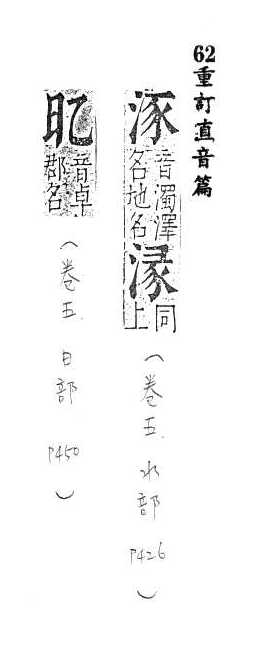 62重訂直音篇
涿 音濁澤
名地名
同
上
(卷五.水部 P426)
音卓
郡名
(卷五 日部 P450)